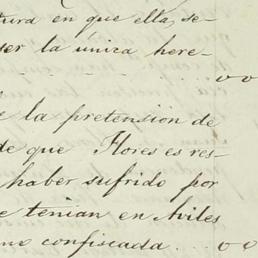 tura en que ella, se-
ser la única here-
. . . . . . . . . . 00
e la pretension de
de que Flores es res-
haber sufrido por
e tenian en Aviles
mo confiscada . . . 00